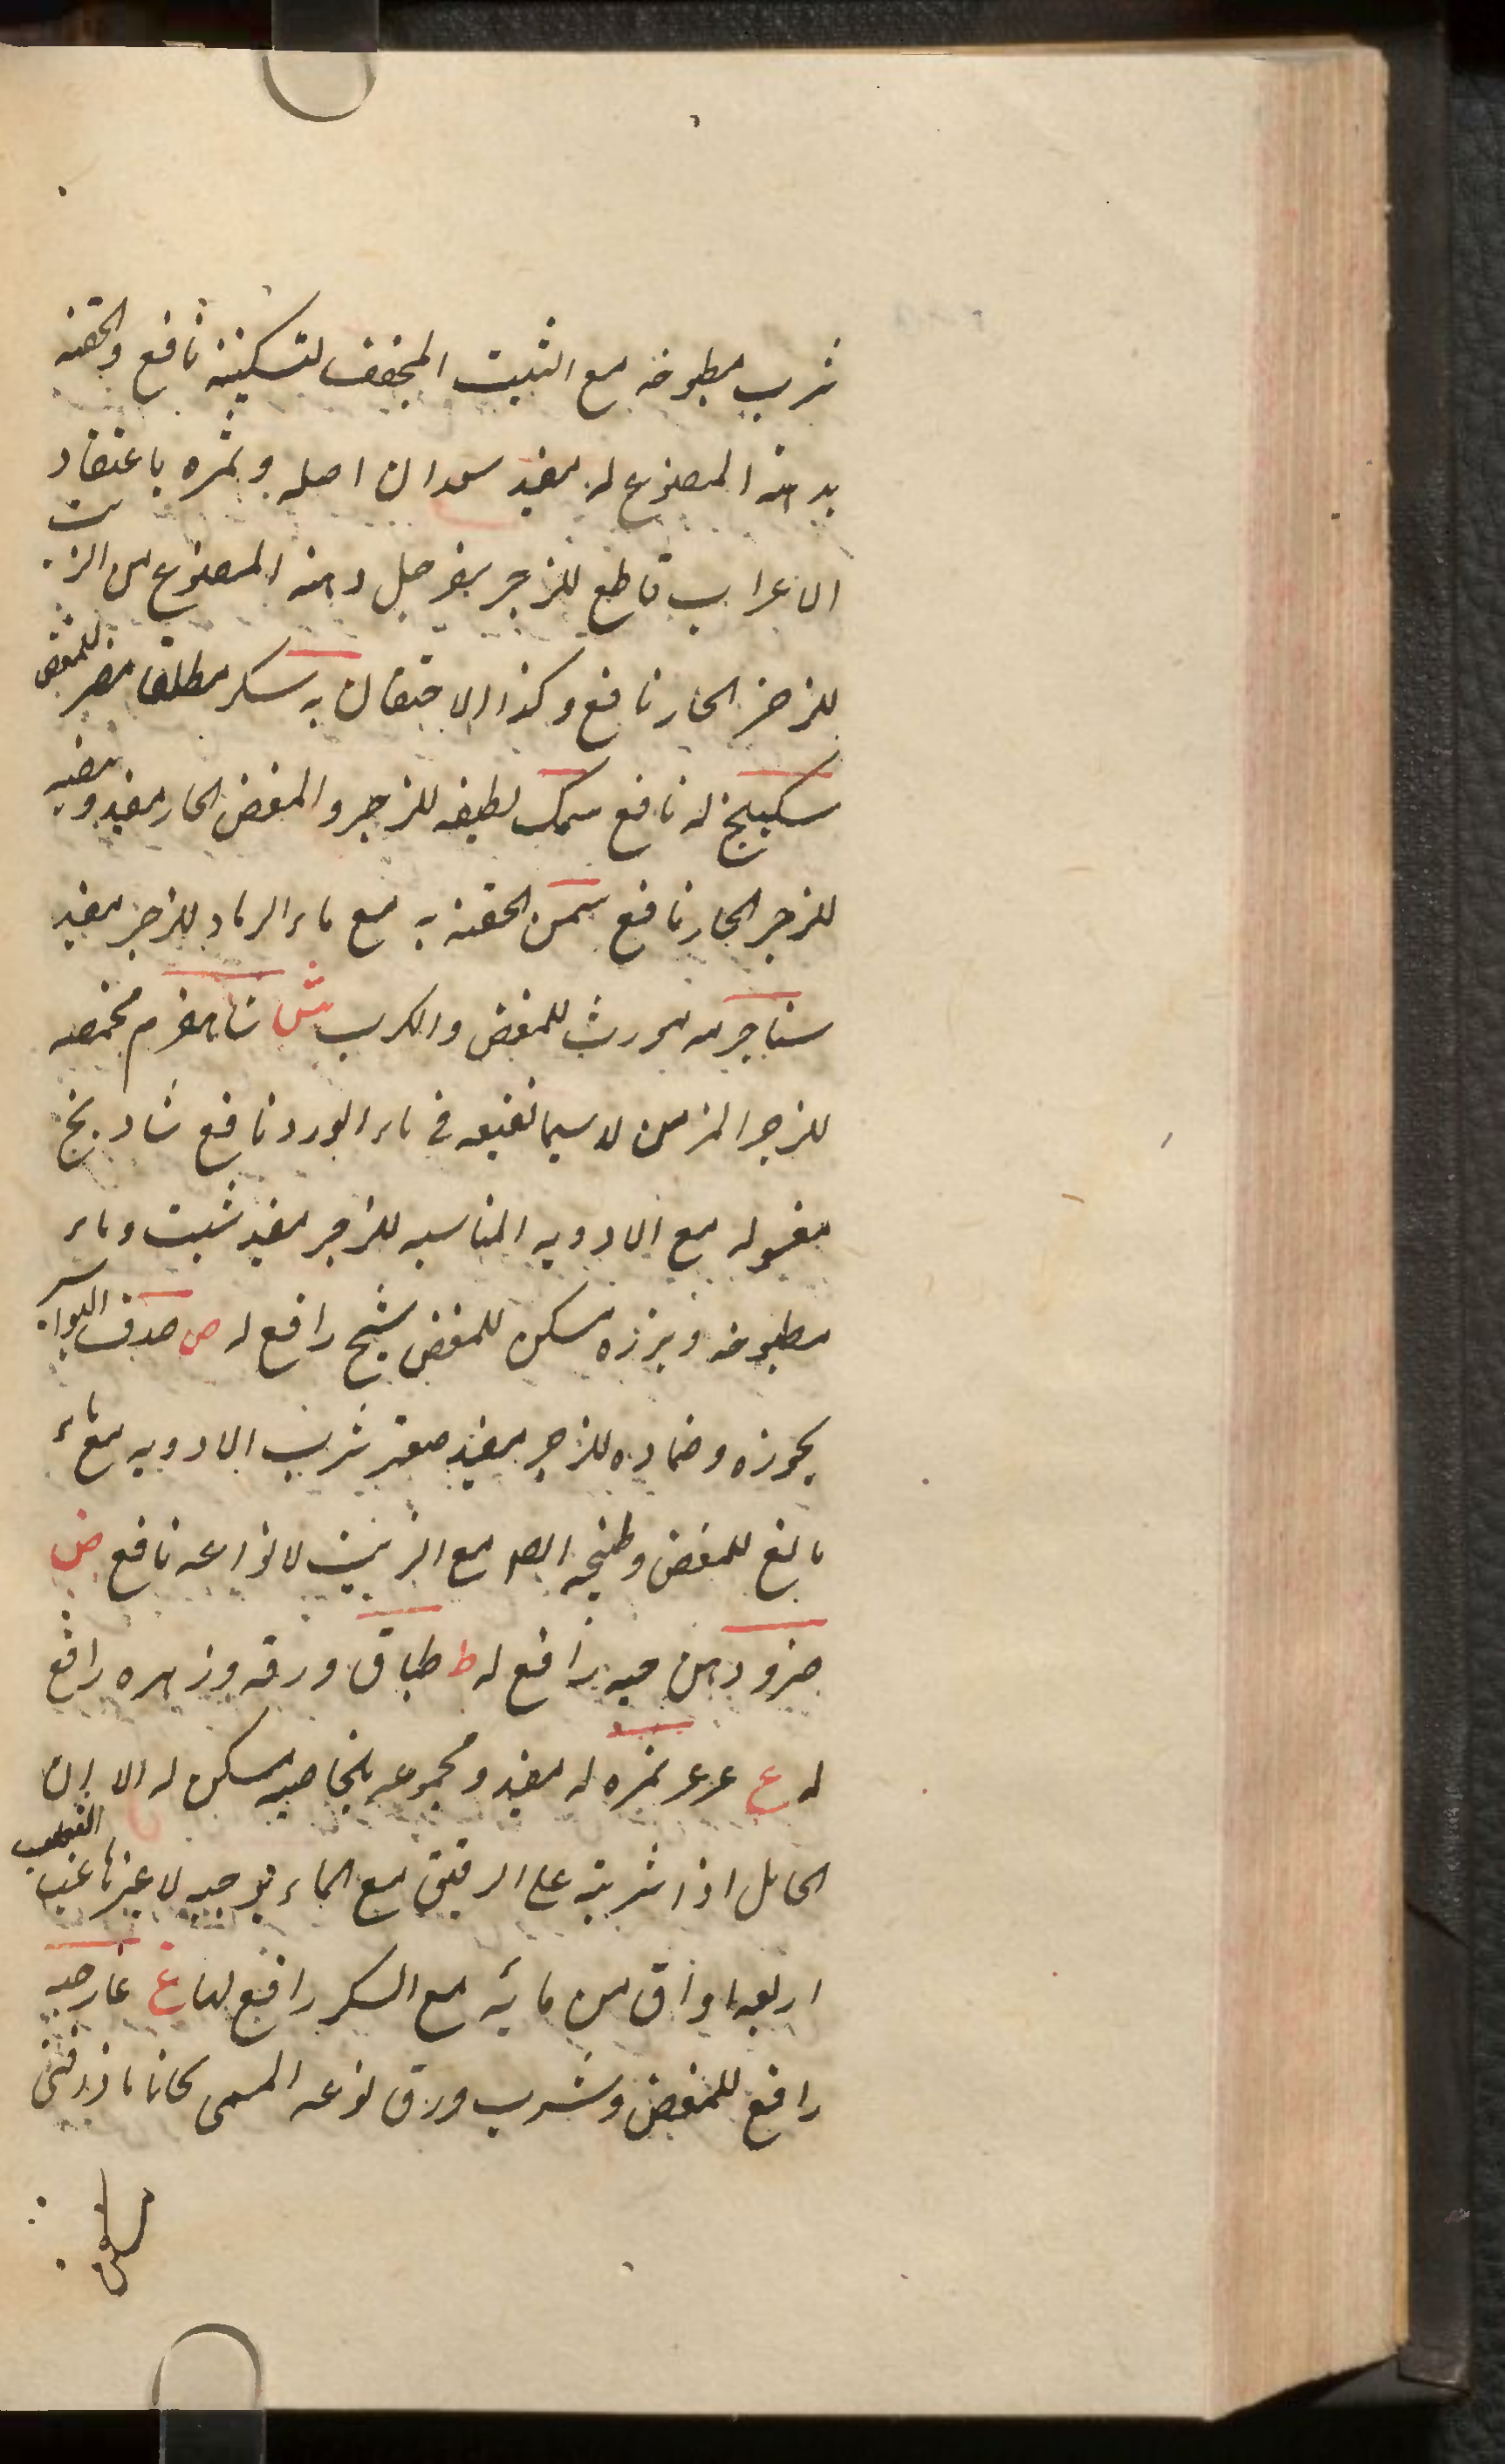 شرب مطبوخه مع الشبت المجفف لتسكينه نافع والحقنه
بدهنه المصنوع له مفيد سعدان اصله وثمره باعتقاد
الاعراب قاطع للزحير سفرجل دهنه المصنوع من الزيت
للزحير الحار نافع وكذا الاحتقان به سكر مطلقا مضر للمغص
سكبينج له نافع سمك لطيفه للزحير والمغص الحار مفيد وبيضه
للزحير الحار نافع سمن الحقنه به مع ماء الرماد للزحير مفيد
سنا جرمه مورث للمغص والكرب ش شاهسفرم محمصه
للزحير المزمن لا سيما نقيعه في ماء الورد نافع شادنج
مغسوله مع الادويه المناسبه للزحير مفيد شبت وماء
مطبوخه وبزره مسكن للمغص شيح رافع له ص صدف البواسير
بخوره وضماده للزحير مفيد صعتر شرب الادويه مع ماء
نافع للمغص وطبيخه ايضا مع الزبيب لانواعه نافع ض
ضرو دهن حبه رافع له ط طباق ورقه وزهره رافع
له ع عرعر ثمره له مفيد ومجموعه بالخاصيه مسكن له الا ان
الحامل اذا شربته على الريق مع الماء يوجبه لا غيرها عنب الثعلب
اربعه اواق من مائه مع السكر رافع لها غ غار حبه
رافع للمغص وشرب ورق نوعه المسمى